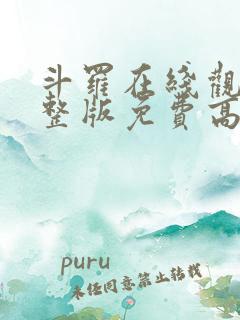 斗羅在綫觀
整版免費高
puru
未经同意禁止转载